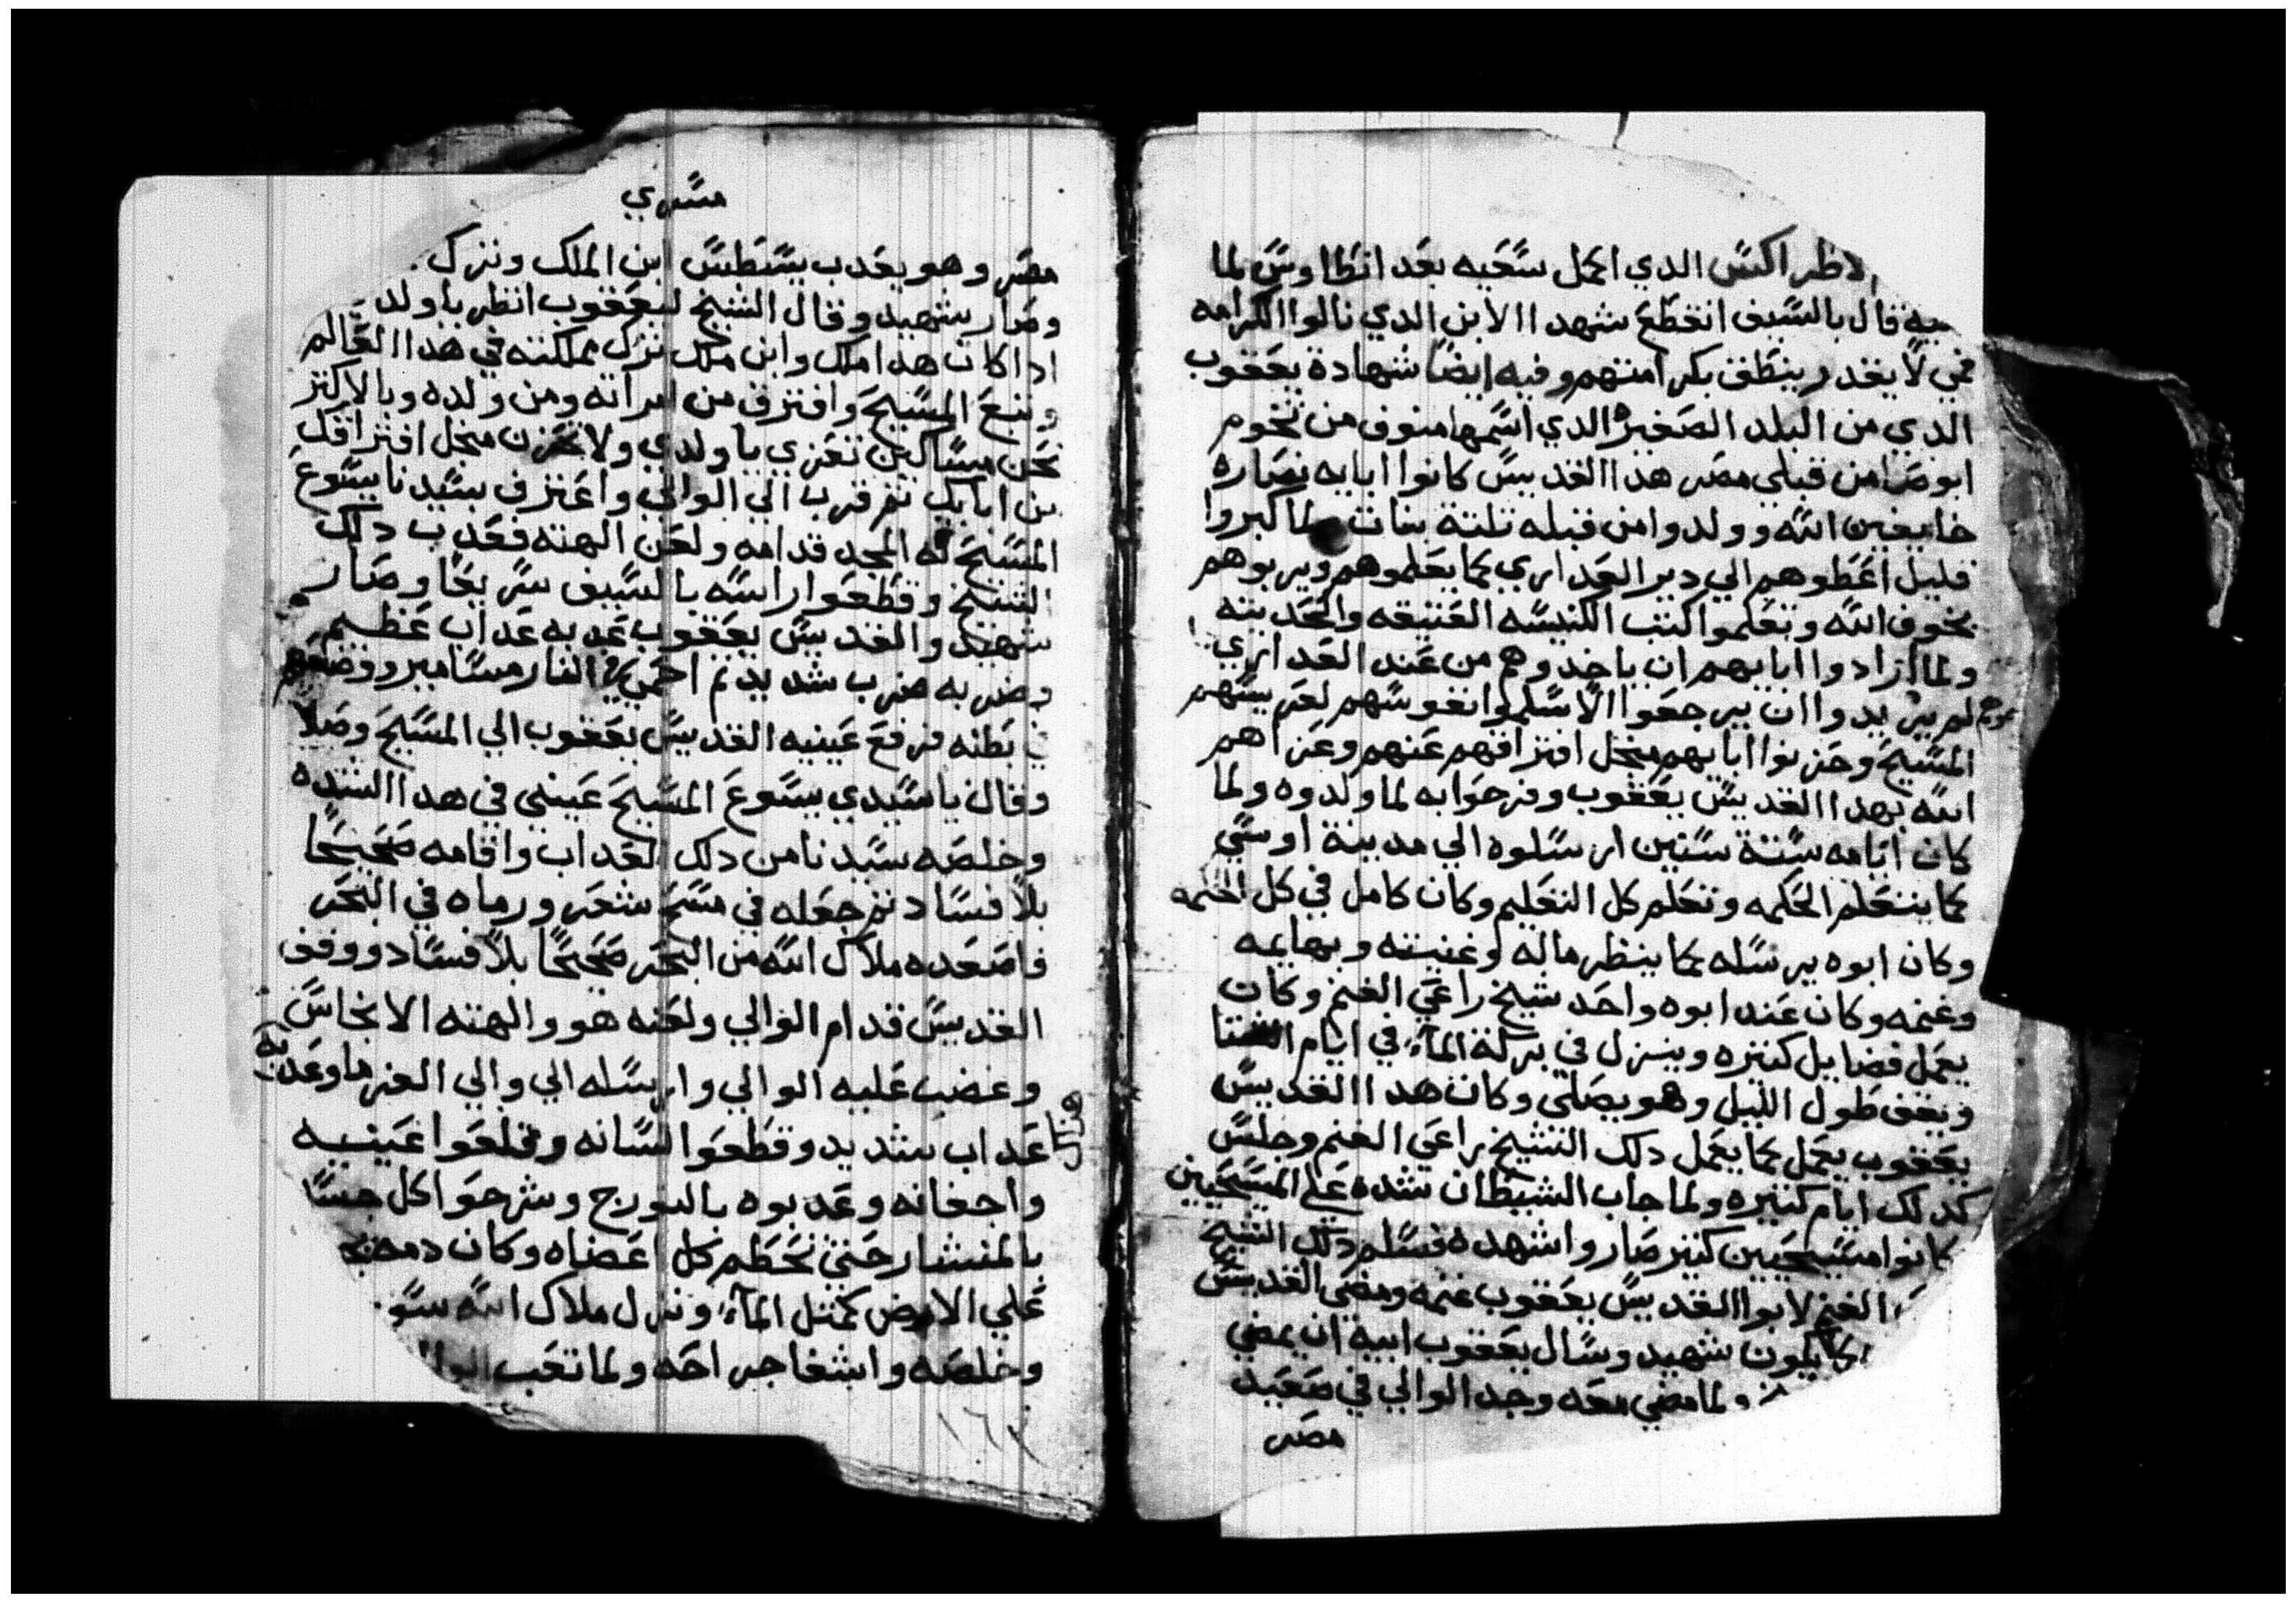 لاطراكس الدي اكمل سعيه بعد انطاوس لما
قال بالسيف انقطع شهدا الابن الدي نالوا الكرامه
فمي لا يقدر ينطق بكرامتهم وفيه ايضا شهادة يعقوب
الدي من البلد الصغيره الدي اسمها منوف من تخوم
ابوصا من قبلي مصر هدا القديس كانوا ابايه نصاره
خايفين الله وولدوا من قبله تلتة بنات لما كبروا
قليل اعطوهم الي دير العداري كما يعلموهم ويربوهم
بخوف الله وتعلموا كتب الكنيسه العتيقه والحديته
ولما ارادوا ابايهم ان ياخدوهم من عند العداري
لم يريدوا ان يرجعوا الا اسلموا نفوسهم لعريسهم
المسيح وحزنوا ابايهم منجل افتراقهم عنهم وعزاهم
الله بهدا القديس يعقوب وفرحوا به لما ولدوه ولما
كان ايامه ستة سنين ارسلوه الي مدينة اوسي
كما يتعلم الحكمه وتعلم كل التعليم وكان كامل في كل الحكمه
وكان ابوه يرسله كما ينظر ماله وغنيته وبهايمه
وغنمه وكان عند ابوه واحد شيخ راعي الغنم وكان
يعمل فضايل كتيره وينزل في بركة المآء في ايام الشتا
ويقف طول الليل وهو يصلي وكان هدا القديس
يعقوب يعمل كما يعمل دلك الشيخ راعي الغنم وجلس
كدلك ايام كتيره ولما جاب الشيطان شده علي المسيحيين
كانوا مسيحيين كتير صاروا شهده فسلم دلك الشيخ
الغنم لابوا القديس يعقوب غنمه ومضي القديس
كما يكون شهيد وسال يعقوب ابيه ان يمضي
ولما مضي معه وجد الوالي في صعيد
مصر
مسري
مصر وهو يعدب يسطس ابن الملك ونزك
وصار شهيد وقال الشيخ ليعقوب انظر يا ولد
ادا كان هدا ملك وابن ملك ترك مملكته في هدا العالم
وتبع المسيح وافترق من امراته ومن ولده وبالاكتر
نحن مساكين تعزي يا ولدي ولا تحزن منجل افتراقك
من ابايك تم قرب الي الوالي واعترف بسيدنا يسوع
المسيح له المجد قدامه ولعن الهته فعدب دلك
الشيخ وقطعوا راسه بالسيف سريعا وصار
شهيد والقديس يعقوب عدبه عداب عظيم
وضربه ضرب شديد تم احمي في النار مسامير ووضعهم
بطنه فرفع عينيه القديس يعقوب الي المسيح وصلا
وقال يا سيدي يسوع المسيح عيني في هدا الشده
وخلصه سيدنا من دلك العداب واقامه صحيحا
بلا فساد تم جعله في مسح شعر ورماه في البحر
فاصعده ملاك الله من البحر صحيحا بلا فساد ووقف
القديس قدام الوالي ولعنه هو والهته الانجاس
وغضب عليه الوالي وارسله الي والي الفرما وعدبه
عداب شديد وقطعوا لسانه وقلعوا عينيه
واجفانه وعدبوه بالبورج وشرحوا كل جسا
بالمنشار حتي تحطم كل اعضاه وكان دمه
علي الارض كمتل المآء ونزل ملاك الله
وخلصه واشفا جراحه ولما تعب الوا
١٦٢